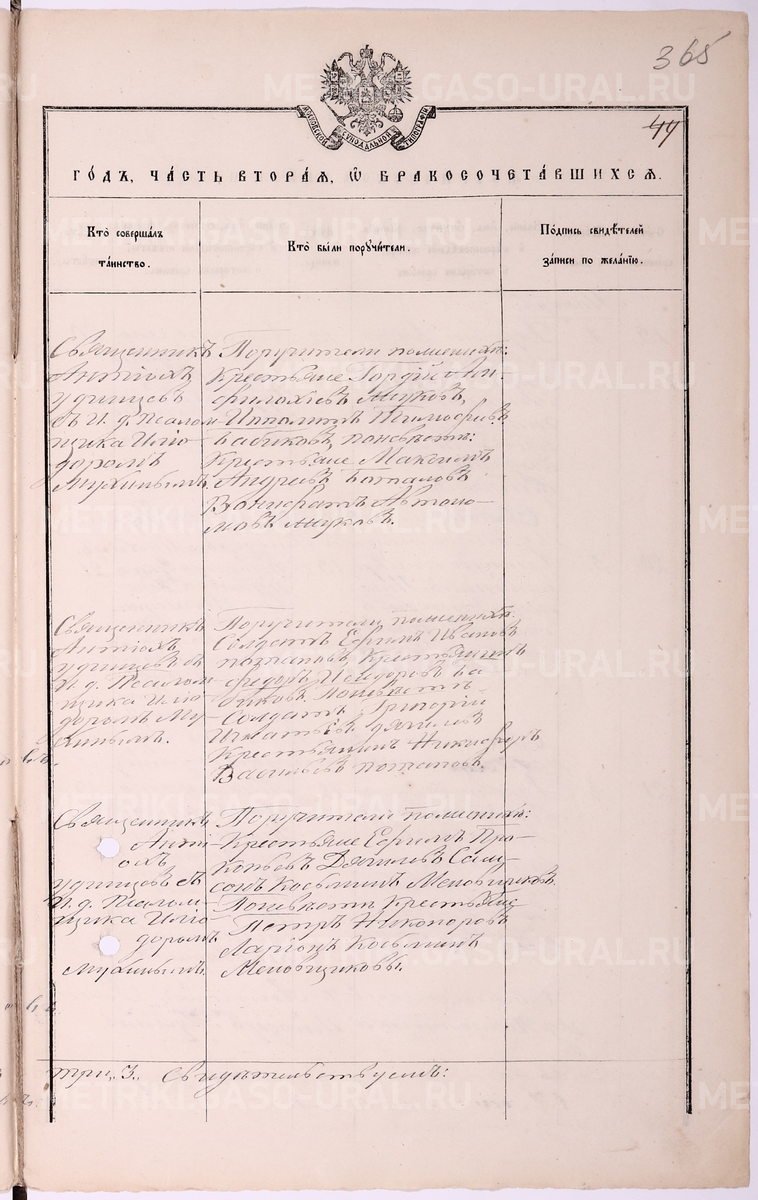 365
44
МОСКОВСКОЙ СѴНОДАЛЬНОЙ ТИПОГРАФІИ
ГО́ДЪ, ЧА́СТЬ ВТОРА́Я, Ѡ҆ БРАКОСОЧЕТА́ВШИХСЯ.
Кто̀ совершáлъ
тáинство.
Кто̀ бы́ли порꙋчи́тели.
По́дпись свидѣ́телей
зáписи по желáнїю.
Священникъ
Антіохъ
Удинцевъ
съ И. д. Псалом-
щика Иліо-
доромъ
Мухинымъ.
Поручители по женихѣ:
Крестьяне Гордій Ам-
филохіевъ Жуковъ,
Ипполитъ
Бабиковъ, по невѣстѣ:
Крестьяне Максимъ
Андреевъ Баталовъ
Вонифатъ Автоно-
мовъ Жуковъ.
Священникъ
Антіохъ
Удинцевъ съ
И. д. Псалом-
щика Иліо-
доромъ Му-
хинымъ.
Поручители по женихѣ:
Солдатъ Ефимъ Ивановъ
Крестьянинъ
Федоръ Ба-
биковъ. По невѣстѣ
Солдатъ Григорій
Игнатьевъ Данилов
Крестьянинъ Никифоръ
Васильевъ Потаповъ.
Священникъ
Антіохъ
Удинцовъ съ
И. д. Псалом-
щика Иліо-
доромъ
Мухинымъ.
Поручители по женихѣ:
Крестьяне Ефимъ Про-
копьевъ Даниловъ Сам-
сонъ Косьминъ Меновщиковъ.
По невѣстѣ Крестьяне
Петръ Никоноровъ
Ларіонъ Косьминъ
Меновщиковы.
три, 3. Свидѣтельствуемъ:
METRIKI.GASO-URAL.RU